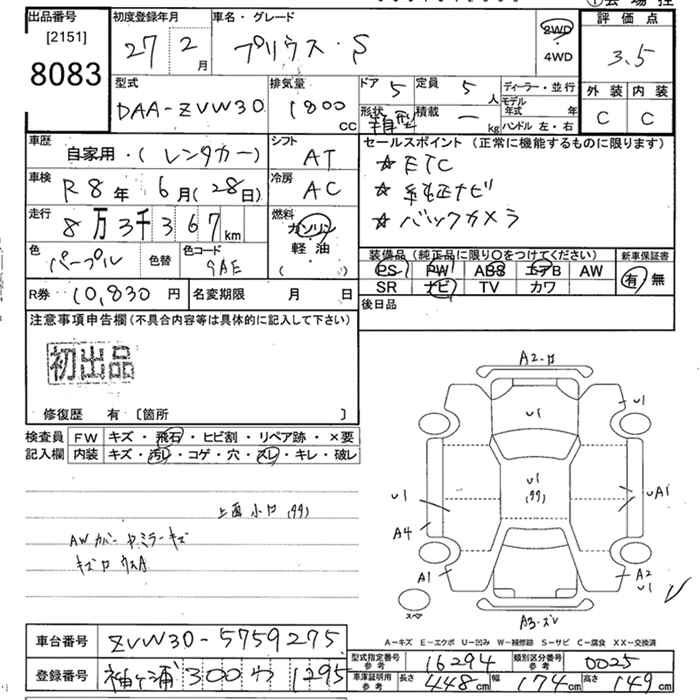 出品番号 初度登録年月 車名・グレード 評価点
[2151] 27 2月 プリウス・S 2WD・4WD 3.5
8083 外装 内装
型式 排気量 ドア 定員 ディーラー・並行
DAA-ZVW30 1800cc 5 5人 モデル年式 年 C C
形状 積載 kg ハンドル 左・右
車歴 シフト セールスポイント (正常に機能するものに限ります)
自家用・(レンタカー) AT ☆ETC
車検 冷房 ☆純正ナビ
R8年 6月(28日) AC ☆バックカメラ
走行 燃料
8万3千367km ガソリン
軽・油
色 色替 色コード 装備品 (純正品に限り○をつけてください) 新車保証書
パープル 9AE PS PW ABS エアB AW 有・無
R券 10,830円 名変期限 月 日 SR ナビ TV カワ
注意事項申告欄(不具合内容等は具体的に記入して下さい) 後日品
初出品
修復歴 有 〔箇所 〕
検査員 FW キズ・飛石・ヒビ割・リペア跡・×要
記入欄 内装 キズ・汚レ・コゲ・穴・スレ・キレ・破レ
AW カバー ヤミラーキズ
A2
u1
u1
u1
u1
uA1
A4
A1
A2
u1
スペア
A-キズ E-エクボ U-凹み W-補修跡 S-サビ C-腐食 XX-交換済
車台番号 ZVW30-5759275
型式指定番号 16294 類別区分番号 0025
登録番号 袖ヶ浦 300 1295
車庫証明用参考 長さ 448cm 幅 174cm 高さ 149cm